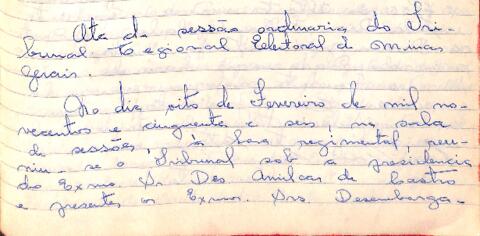 Ata da sessão ordinaria do Tri-
bunal Regional Eleitoral de Minas
Gerais.
No dia oito de Fevereiro de mil no-
vecentos e cinquenta e seis, na sala
de sessões, à hora regimental, reu-
niu-se o Tribunal sob a presidencia
do Exmo. Sr. Des. Amilcar de Castro
e presentes os Exmos. Srs. Desembarga-